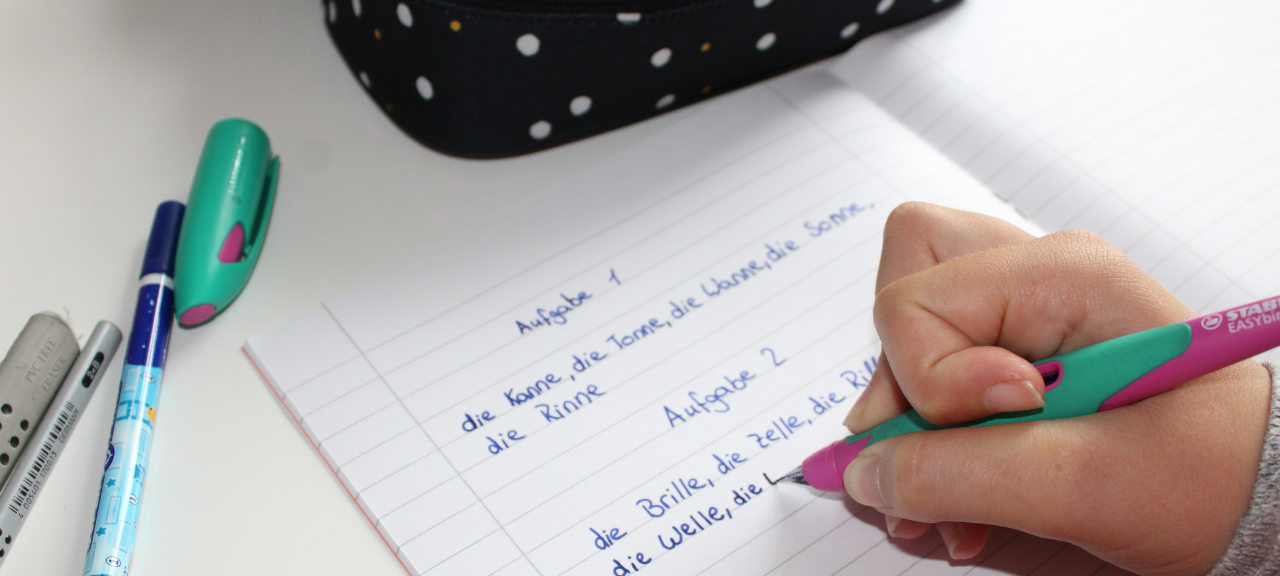 Aufgabe 1
die Kanne, die Tonne, die Wanne, die Sonne,
die Rinne
Aufgabe 2
die Brille, die Zelle, die Rill
die Welle, die
STAB
EASYbi
PVC FREE